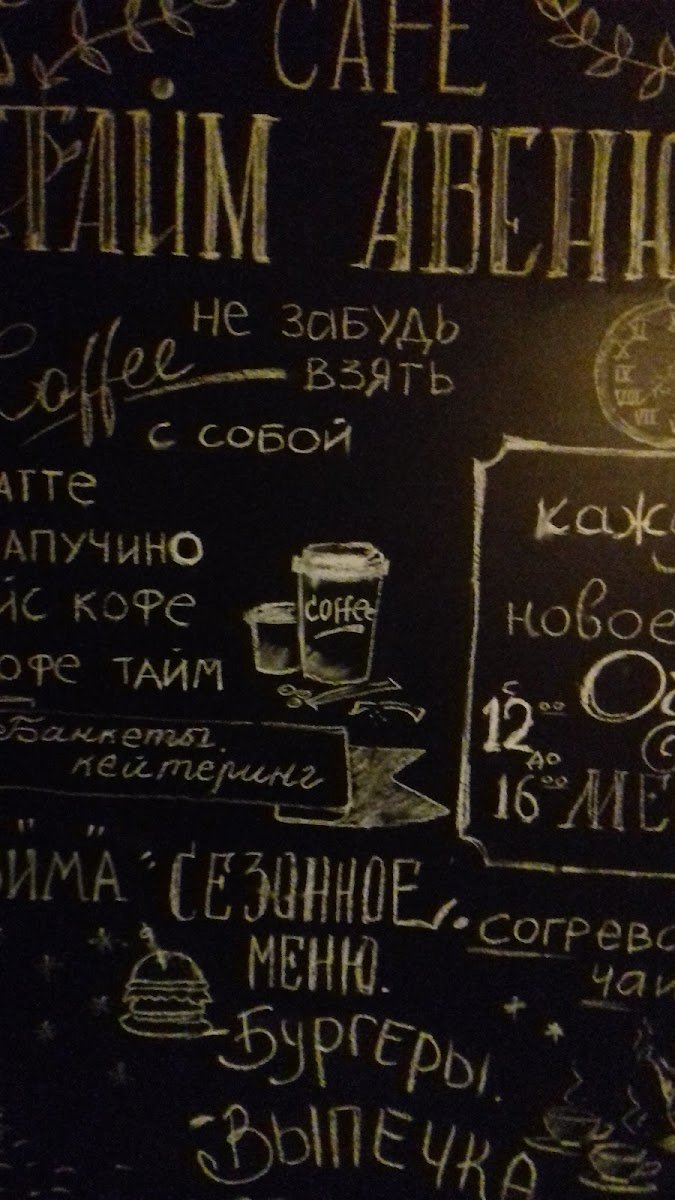 CAFE
ТАЙМ АВЕНЮ
Coffee не забудь
взять
с собой
АТТЕ
АПУЧИНО
ЙС КОФЕ
ОФЕ ТАЙМ
coffee
Банкеты.
кейтеринг
КАЖ
НОВОЕ
с 12 00
до 16 00
МЕ
СЕЗОННОЕ
МЕНЮ.
-Бургеры.
-ВЫПЕЧКА
согрева
чаи